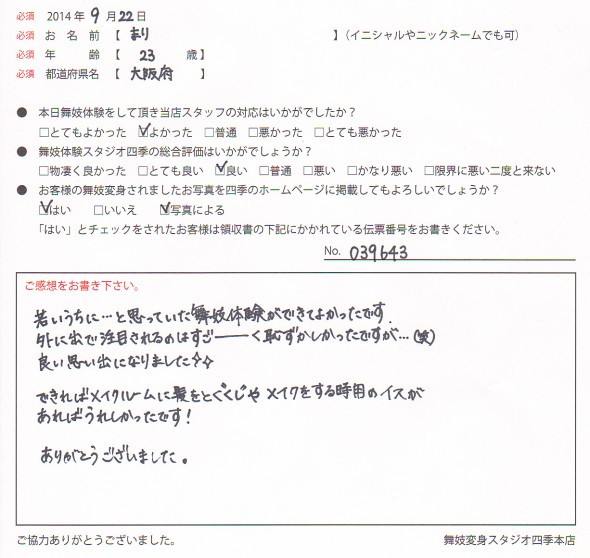 必須 2014年 9月22日
必須 お名前【 まり 】(イニシャルやニックネームでも可)
必須 年齢【 23 歳】
必須 都道府県名【 大阪府 】
● 本日舞妓体験をして頂き当店スタッフの対応はいかがでしたか？
□とてもよかった ☑よかった □普通 □悪かった □とても悪かった
● 舞妓体験スタジオ四季の総合評価はいかがでしょうか？
□物凄く良かった □とても良い ☑良い □普通 □悪い □かなり悪い □限界に悪い二度と来ない
● お客様の舞妓変身されましたお写真を四季のホームページに掲載してもよろしいでしょうか？
☑はい □いいえ ☑写真による
「はい」とチェックをされたお客様は領収書の下記にかかれている伝票番号をお書きください。
No. 039643
ご感想をお書き下さい。
若いうちに…と思っていた舞妓体験ができてよかったです.
外に出て注目されるのはすごーーーく恥ずかしかったですが…(笑)
良い思い出になりました✧✧
できればメイクルームに髪をとくくしや メイクをする時用のイスが
あればうれしかったです！
ありがとうございました。
ご協力ありがとうございました。
舞妓変身スタジオ四季本店